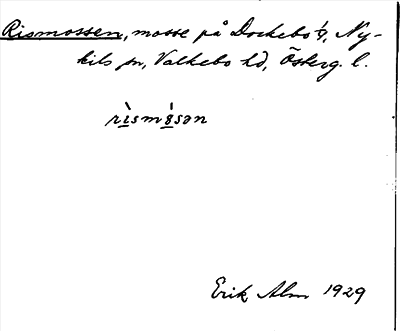 Rismossen, mosse på Dockebo ½, Ny-
kils sn, Valkebo hd, Österg. l.
rìsmósən
Erik Alm 1929